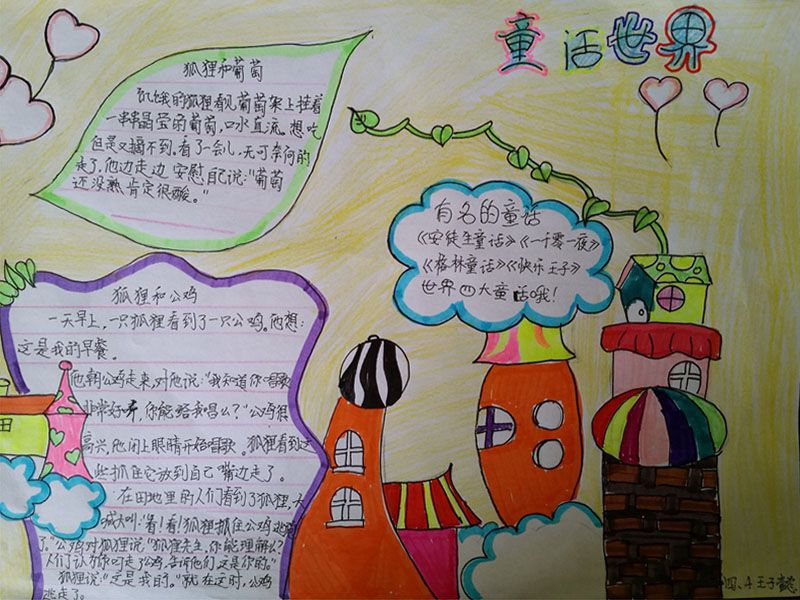 童话世界
狐狸和葡萄
饥饿的狐狸看见葡萄架上挂着
一串串晶莹的葡萄，口水直流。想吃
但是又摘不到。看了一会儿，无可奈何的
走了，他边走边安慰自己说："葡萄
还没熟肯定很酸。"
有名的童话
《安徒生童话》《一千零一夜》
《格林童话》《快乐王子》
世界四大童话哦！
狐狸和公鸡
一天早上，一只狐狸看到了一只公鸡。他想：
这是我的早餐。
他朝公鸡走来，对他说："我知道你唱歌
非常好听，你能给我唱么？"公鸡很
高兴，他闭上眼睛开始唱歌。狐狸看到这
些抓住它放到自己嘴边走了。
在田地里的人们看到了狐狸，大
喊大叫："看！看！狐狸抓住公鸡逃跑
了。"公鸡对狐狸说："狐狸先生，你能理解么？
人们认为你叼走了公鸡，告诉他们这是你的。"
狐狸说："这是我的。"就在这时，公鸡
逃走了。
四、4 王子